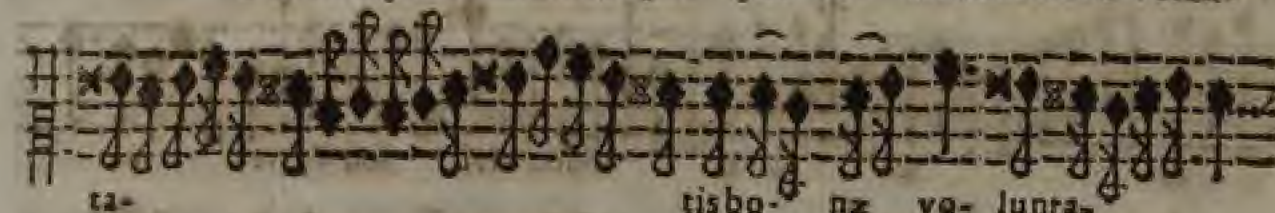 ta- tis bo- næ vo- lunta-